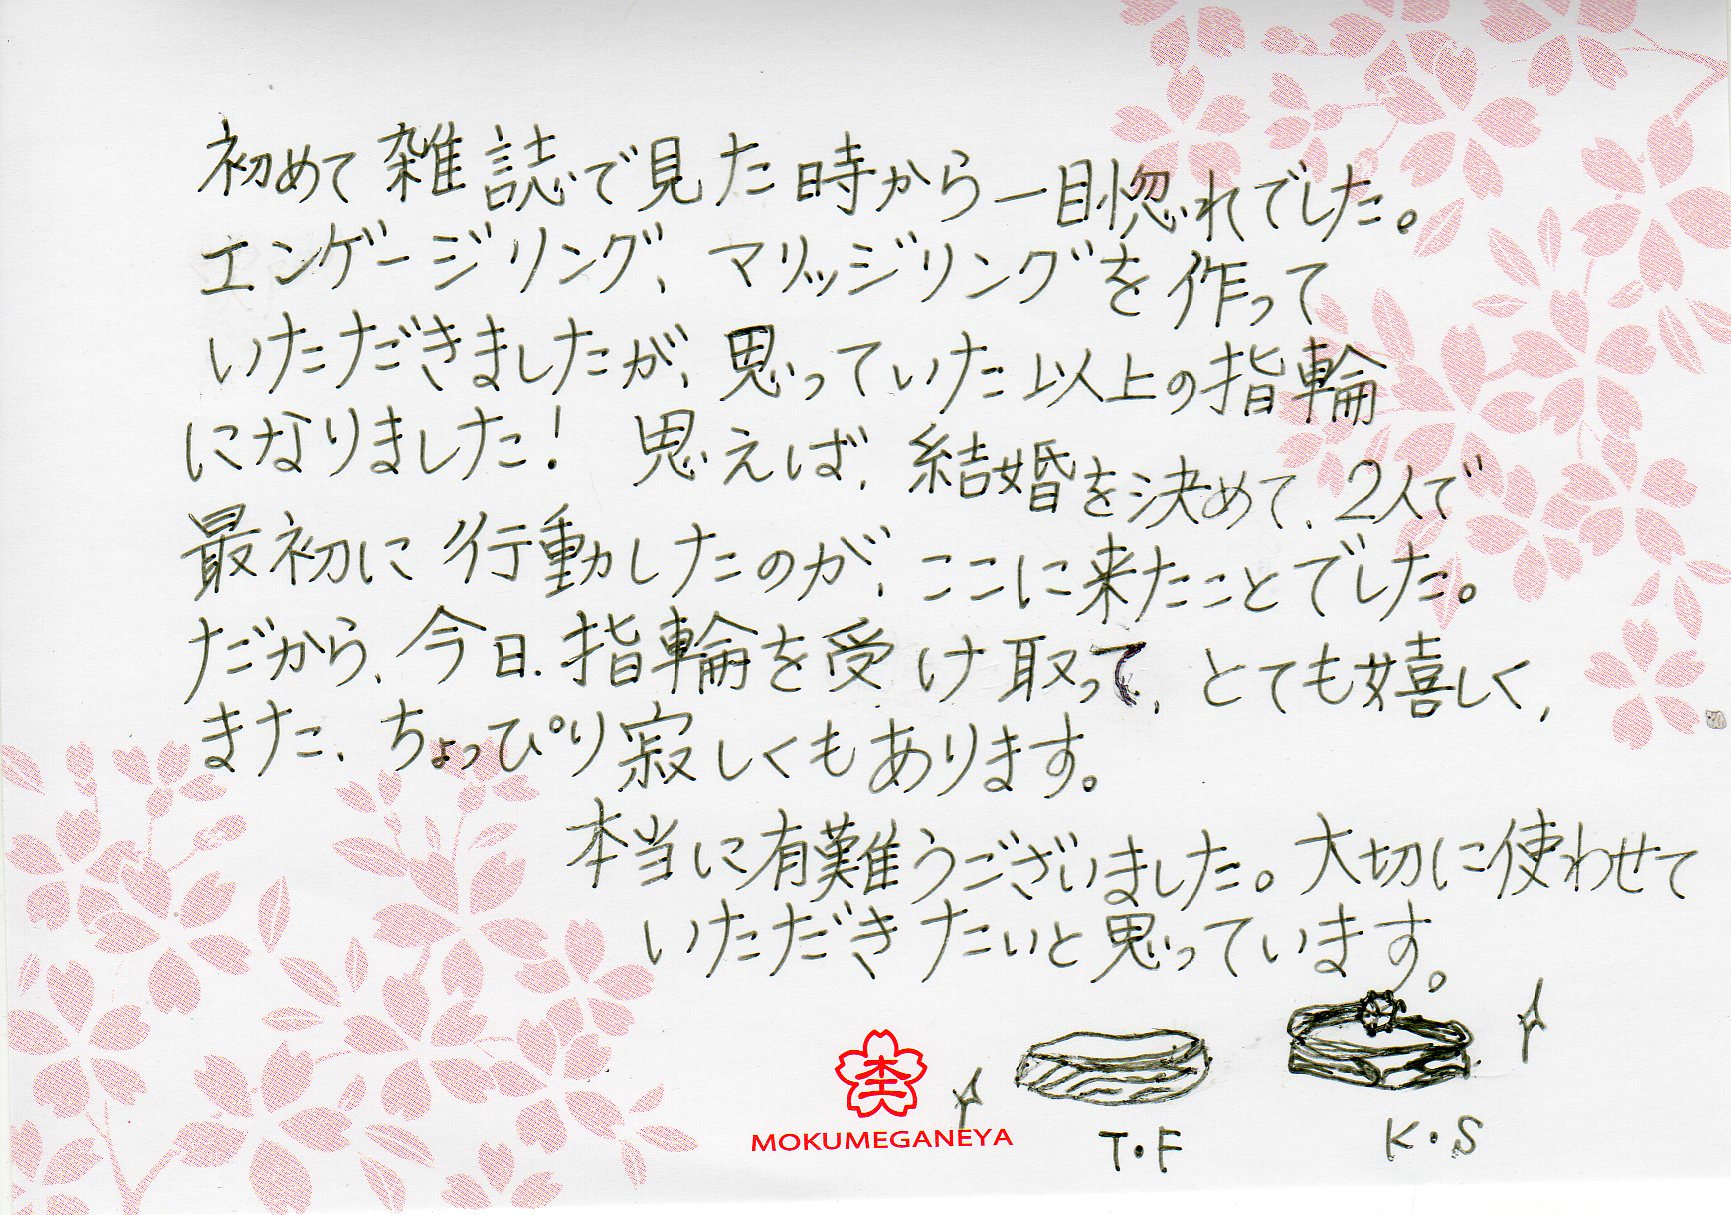 初めて雑誌で見た時から一目惚れでした。
エンゲージリング、マリッジリングを作って
いただきましたが、思っていた以上の指輪
になりました！ 思えば、結婚を決めて、2人で
最初に行動したのが、ここに来たことでした。
だから、今日、指輪を受け取って、とても嬉しく、
また、ちょっぴり寂しくもあります。
本当に有難うございました。大切に使わせて
いただきたいと思っています。
MOKUMEGANEYA
T・F
K・S